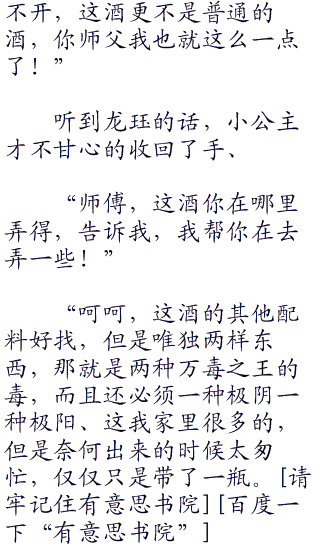 不开，这酒更不是普通的
酒，你师父我也就这么一点
了！”
听到龙珏的话，小公主
才不甘心的收回了手、
“师傅，这酒你在哪里
弄得，告诉我，我帮你在去
弄一些！”
“呵呵，这酒的其他配
料好找，但是唯独两样东
西，那就是两种万毒之王的
毒，而且还必须一种极阴一
种极阳、这我家里很多的，
但是奈何出来的时候太匆
忙，仅仅只是带了一瓶。[请
牢记住有意思书院][百度一
下“有意思书院”]